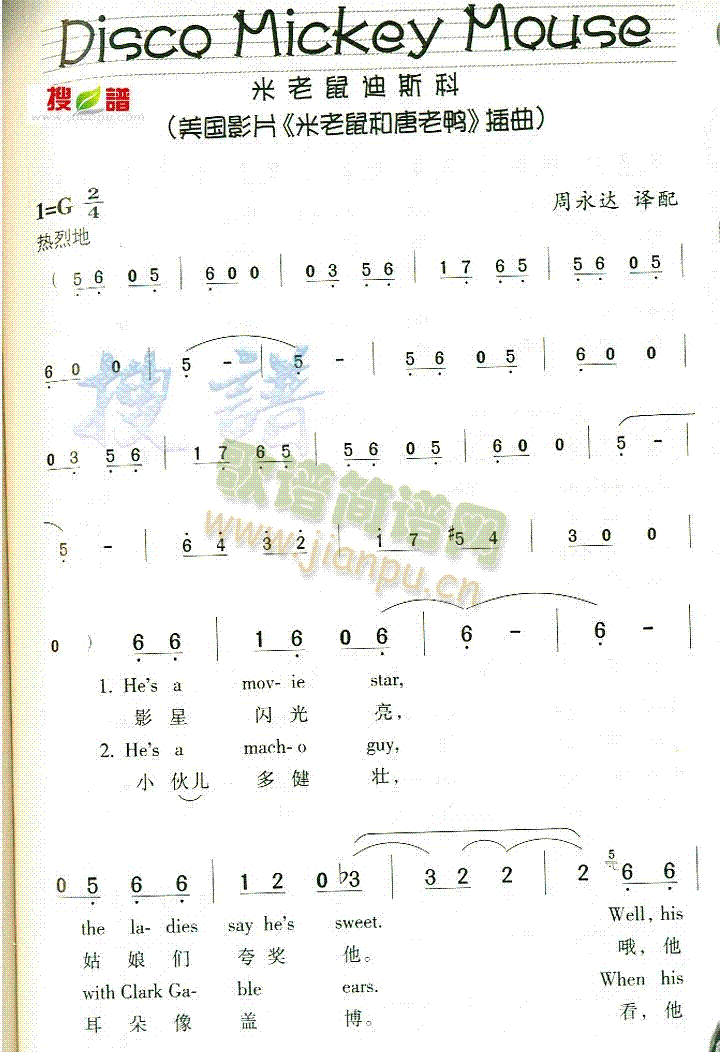 Disco Mickey Mouse
米老鼠迪斯科
搜譜
(美国影片《米老鼠和唐老鸭》插曲)
1=G 2/4
周永达 译配
热烈地
( 5 6 0 5 | 6 0 0 | 0 3 5 6 | 1 7 6 5 | 5 6 0 5 |
6 0 0 | 5 - | 5 - | 5 6 0 5 | 6 0 0 |
搜譜
0 3 5 6 | 1 7 6 5 | 5 6 0 5 | 6 0 0 | 5 - |
歌谱简谱网
www.jianpu.cn
5 - | 6 4 3 2 | 1 7 #5 4 | 3 0 0 |
0 ) 6 6 | 1 6 0 6 | 6 - | 6 - |
1. He's a mov- ie star,
影 星 闪 光 亮,
2. He's a mach- o guy,
小 伙儿 多 健 壮,
0 5 6 6 | 1 2 0 b3 | 3 2 2 | 2 5 6 6 |
the la- dies say he's sweet. Well, his
姑 娘 们 夸 奖 他。 哦, 他
with Clark Ga- ble ears. When his
耳 朵 像 盖 博。 看, 他